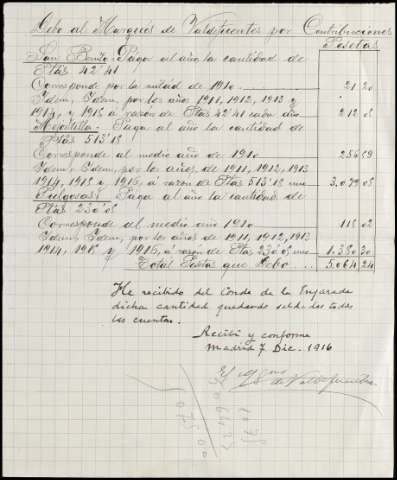 Debo al Marqués de Valdefuentes por Contribuciones
Pesetas
San Benito. Paga al año la cantidad de
Ptas 42'41
Corresponde por la mitad de 1910 21 20
Idem, Idem, por los años, 1911, 1912, 1913 y
1914, y 1915 á razon de Ptas 42'41 cada año 212 05
Mejostilla. Paga al año la cantidad de
Ptas 513'18
Corresponde al medio año de 1910 256 59
Idem, Idem, por los años, de 1911, 1912, 1913
1914, 1915 y 1916, á razon de Ptas 513'18 3.079 08
Paga al año la cantidad de
Ptas 230'05
Corresponde al medio año 1910 115 02
Idem, Idem, por los años de 1911, 1912, 1913
1914, 1915 y 1916, á razon de Ptas 230'05 1.380 30
Total Pesetas que Debo 5.064 24
He recibido del Conde de la Enjarada
dicha cantidad quedando saldadas todas
las cuentas.
Recibi y conforme
Madrid 7 Dic. 1916
El de Valdefuentes